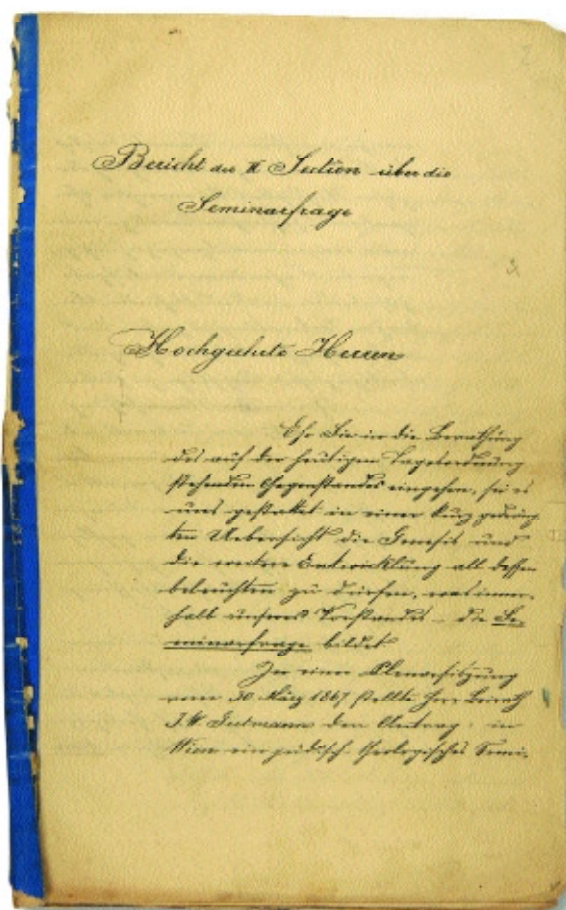 Bericht der II Section über die
Seminarfrage
Hochgeehrte Herren
Ehe Sie in die Berathung
des auf der heutigen Tagesordnung
stehenden Gegenstandes eingehen, sei es
uns gestattet in einer kurz gedräng
ten Uebersicht die Genesis und
die weitere Entwicklung all dessen
beleuchten zu dürfen, was inner-
halb unseres Vorstandes – die Se-
minarfrage bildet
In einer Plenarsitzung
vom 30. März 1867 stellte Herr Beirath
J. W. Gutmann den Antrag: in
Wien ein jüdisch-theologisches Semi-